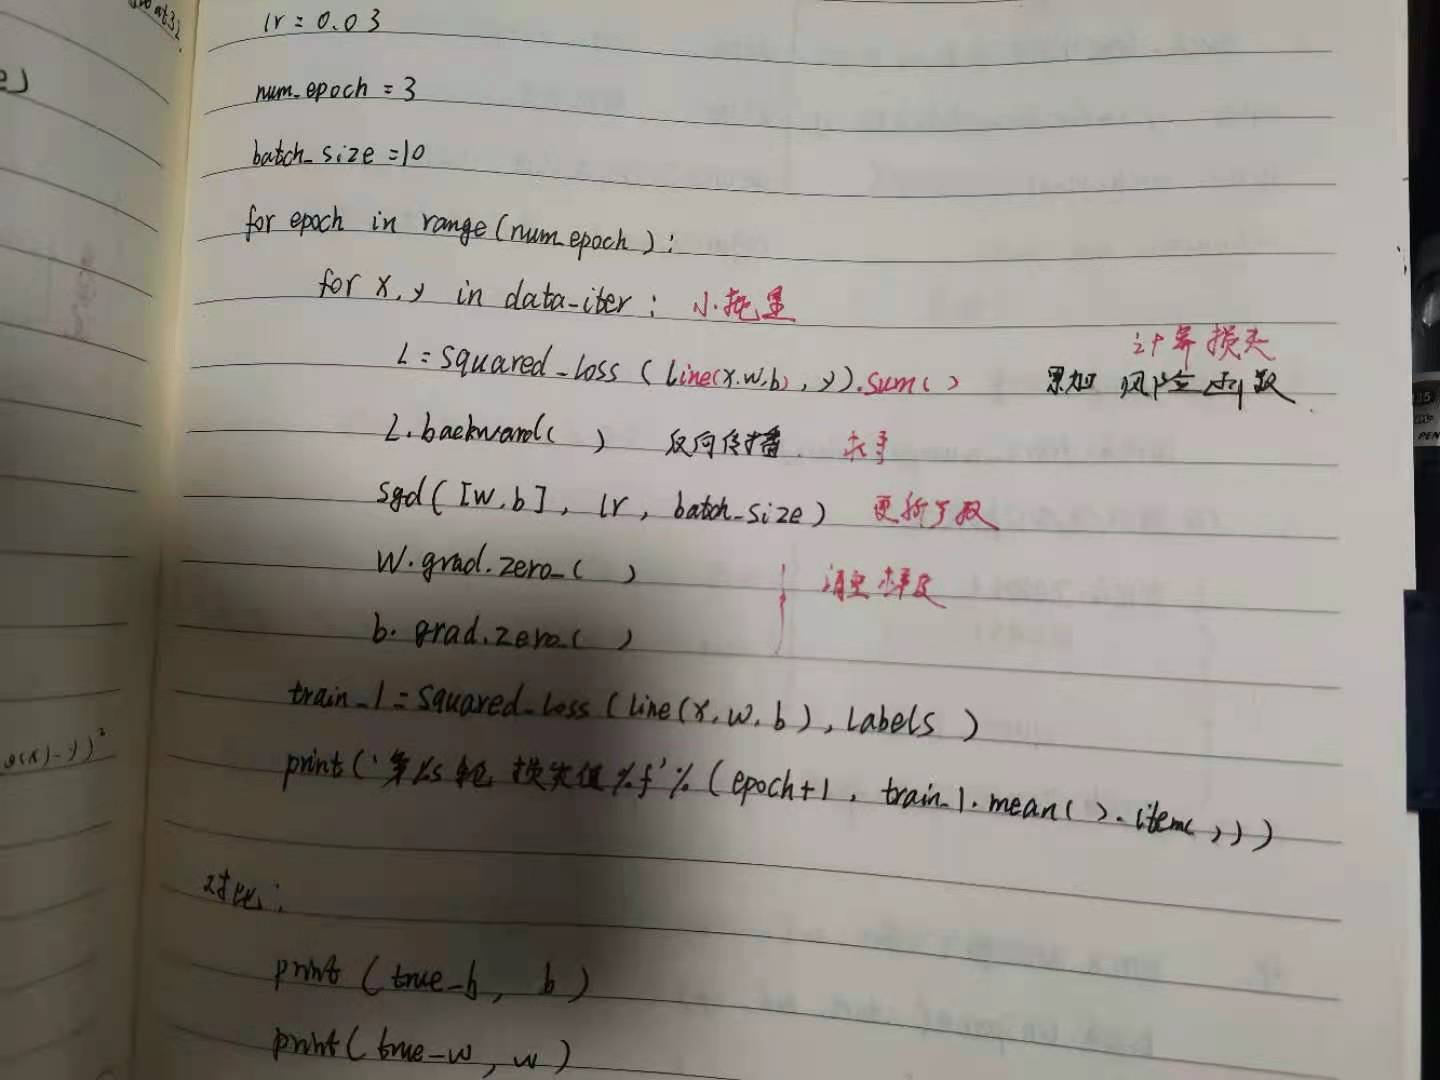 oat32.
e)
(x)-y)²
lr = 0.03
num_epoch = 3
batch_size = 10
for epoch in range(num_epoch):
for x, y in data-iter: 小批量
计算损失
L = squared_loss (Line(x,w,b), y).sum() 累加 风险函数
L.backward( ) 反向传播 求导
sgd([w,b], lr, batch_size) 更新参数
W.grad.zero_( )
清空梯度
b.grad.zero_( )
train_l = squared_loss (Line(x,w,b), Labels )
print('第%s轮 损失值%f'%(epoch+1, train_l.mean().item()))
对比:
print (true_b, b)
print(true_w, w)